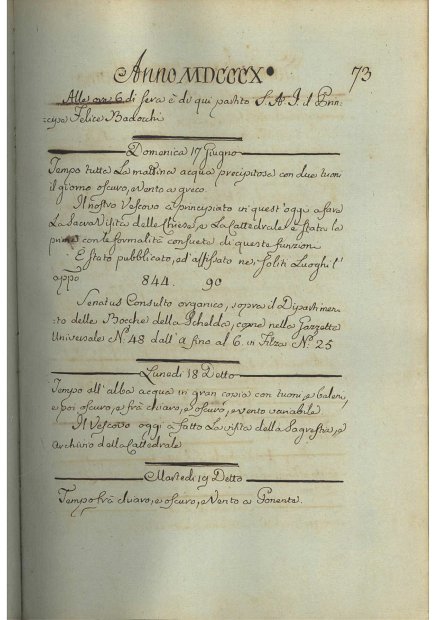 Anno MDCCCX. 73
Alle ore 6 di sera è di qui partito S. A. I. il Prin-
cipe Felice Badochi
Domenica 17 Giugno
Tempo tutta la mattina acqua precipitosa con due tuoni
il giorno oscuro, e vento a greco.
Il nostro Vescovo à principiato in quest'oggi a fare
La Sacra Visita delle Chiese, e La Cattedrale è stata la
prima con le formalità consuete di queste funzioni
È stato pubblicato, ed affissato nei soliti Luoghi l'
app.o
844. 90
Senatus Consulto organico, sopra il Dipartimen-
to delle Bocche della Schelda, come nella Gazzetta
Universale N.o 48 dall' A fino al 6. in Filza N.o 25
Lunedi 18 Detto
Tempo all'alba acqua in gran copia con tuoni, e baleni,
e poi oscuro, e frà chiaro, e oscuro, e vento variabile
Il Vescovo oggi à fatto La visita della Sagrestia, e
Archivio della Cattedrale
Martedi 19 Detto
Tempo frà chiaro, e oscuro, e Vento a Ponente.